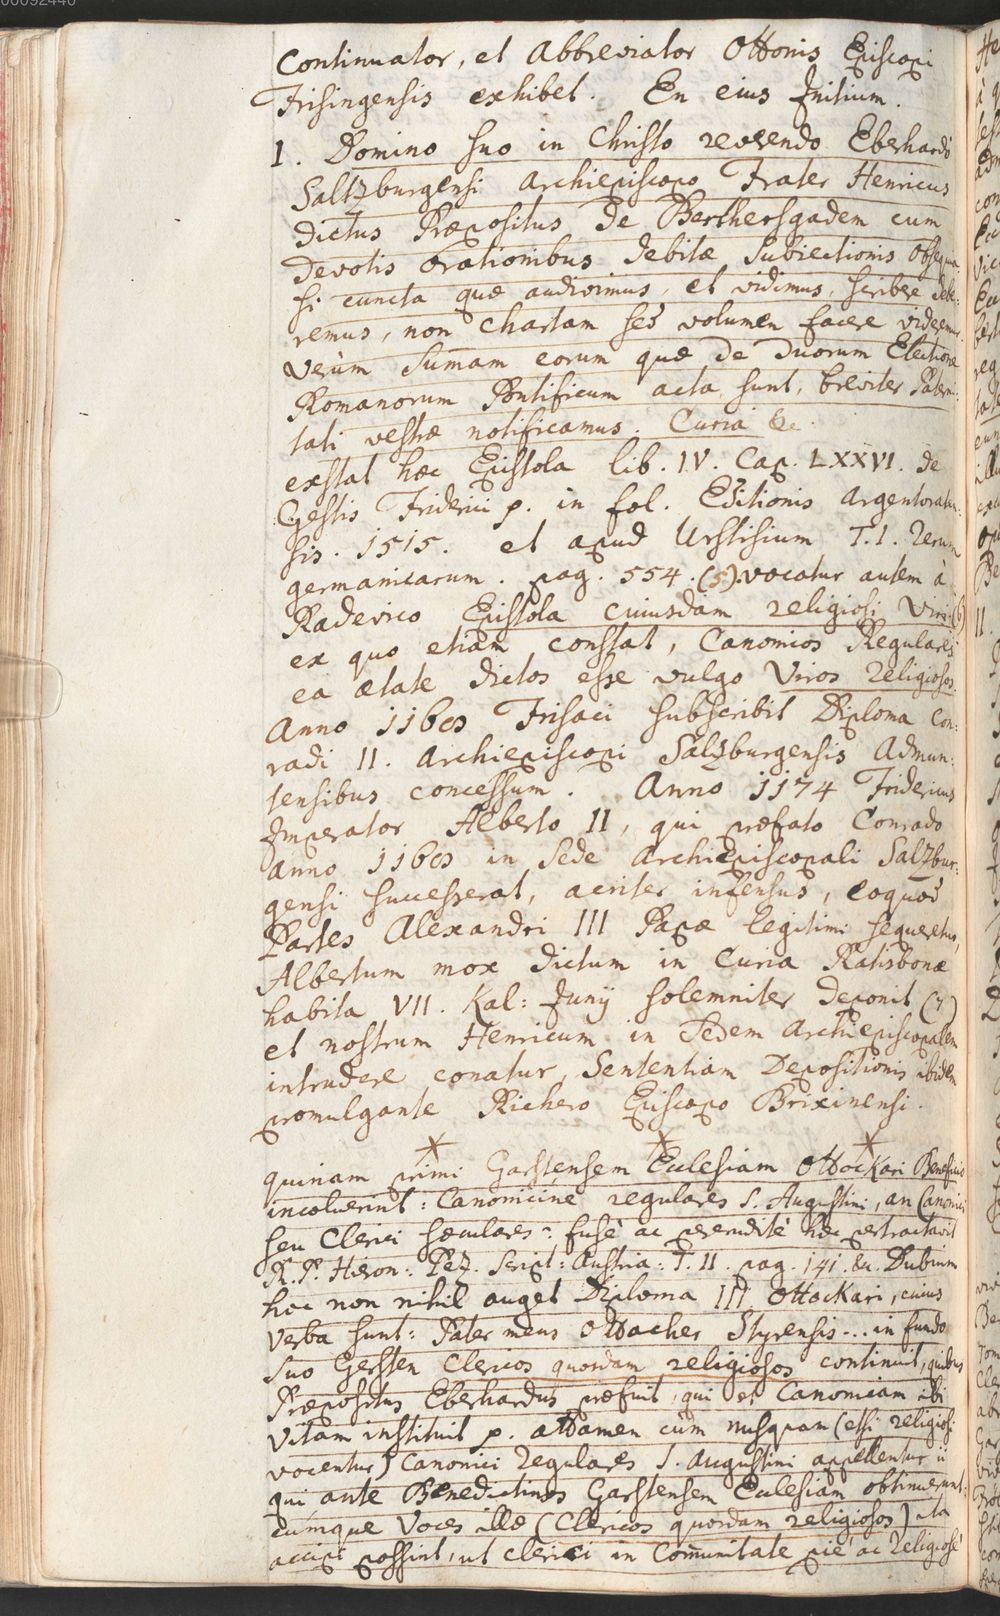 00092440
Continuator, et Abbreviator Ottonis Episcopi
Frisingensis exhibet. En eius Initium.
1. Domino suo in Christo reverendo Eberhardo
Saltzburgensi Archiepiscopo Frater Henricus
dictus Præpositus de Berthersgadem cum
devotis orationibus debitæ subiectionis obsequia.
si cuncta quæ audivimus, et vidimus, scribere debe:
remus, non chartam sed volumen facere videremur
verùm Sumam eorum quæ de duorum Electione
Romanorum Pontificum acta sunt, breviter Paterni:
tati vestræ notificamus. Curia &c.
exstat hæc Epistola lib. IV. Cap. LXXVI. de
Gestis Friderici p. in fol. Editionis Argentoraten:
sis. 1515. et apud Urstisium T.I. Rerum
germanicarum. pag. 554. (5) vocatur autem à
Radevico Epistola cuiusdam religiosi Viri. (6)
ex quo etiam constat, Canonicos Regulares
ea ætate dictos esse vulgo Viros religiosos.
Anno 1168 Frisaci subscribit Diploma Con:
radi II. Archiepiscopi Salzburgensis Admun:
tensibus concessum. Anno 1174 Fridericus
Imperator Alberto II, qui præfato Conrado
anno 1168 in Sede Archiepiscopali Salzbur:
gensi successerat, acriter infensus, eoquod
Partes Alexandri III Papæ legitimi sequeretur,
Albertum mox dictum in Curia Ratisbonæ
habita VII. Kal: Junij solemniter deponit (7)
et nostrum Henricum in Sedem Archiepiscopalem
intrudere conatur, Sententiam Depositionis ibidem
promulgante Richero Episcopo Brixinensi.
* * *
quinam primi Garstensem Ecclesiam Ottockari Beneficio
incoluerint: Canonicine regulares S. Augustini, an Canonici
seu Clerici sæculares: fusè ac pererudité hæc pertractavit
R.P. Hieron: Pez. Script: Austria: T. II. pag. 141. &c. Dubium
hoc non nihil auget Diploma III Ottockari, cuius
verba sunt: Pater meus Ottocher Styrensis... in fundo
suo Gersten Clericos quosdam religiosos continuit, quibus
Præpositus Eberhardus præfuit, qui et Canonicam ibi
vitam instituit p. attamen cùm nusquam (etsi religiosi
vocentur) Canonici Regulares S. Augustini appellentur ii
qui ante Benedictinos Garstensem Ecclesiam obtinuerunt:
cumque Voces illæ (Clericos quosdam religiosos) ita
accipi possint, ut clerici in Comunitate piè ac Religiosè